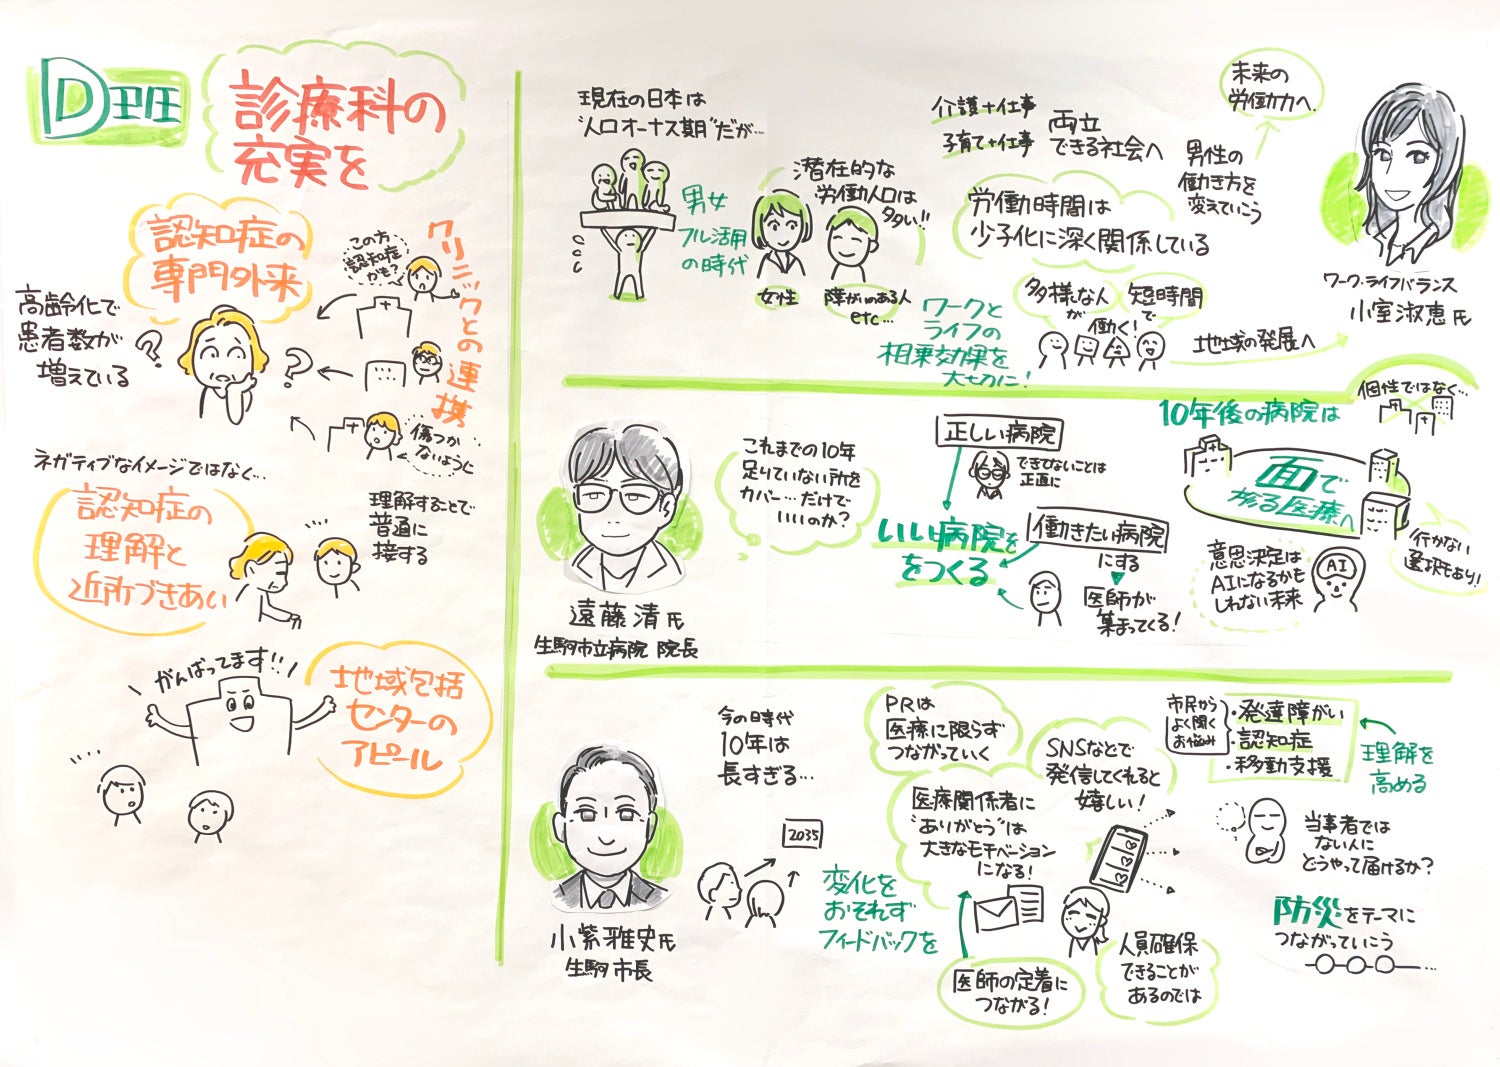 D 班
診療科の
充実を
認知症の
専門外来
高齢化で
患者数が
増えている
?
?
この方
認知症
かも?
クリニックとの連携
傷つか
ないように
ネガティブなイメージではなく…
認知症の
理解と
近所づきあい
理解することで
普通に
接する
がんばってます!!
地域包括
センターの
アピール
現在の日本は
"人口オーナス期"だが…
男女
フル活用
の時代
潜在的な
労働人口は
多い!!
女性
障がいのある人
etc…
介護+仕事
子育て+仕事
両立
できる社会へ
労働時間は
少子化に深く関係している
男性の
働き方を
変えていこう
未来の
労働力へ
ワークと
ライフの
相乗効果を
大切に!
多様な人
が
短時間
で
働く!
地域の発展へ
ワーク・ライフバランス
小室淑恵氏
遠藤清氏
生駒市立病院 院長
これまでの10年
足りていない所を
カバー…だけで
いいのか?
正しい病院
できてないことは
正直に
いい病院を
をつくる
働きたい病院
にする
医師が
集まってくる!
10年後の病院は
個性ではなく…
面で
診る医療へ
行かない
選択もあり!
意思決定は
AIになるかも
しれない未来
AI
小紫雅史氏
生駒市長
今の時代
10年は
長すぎる…
2035
変化を
おそれず
フィードバックを
PRは
医療に限らず
つながっていく
SNSなどで
発信してくれると
嬉しい!
医療関係者に
"ありがとう"は
大きなモチベーション
になる!
医師の定着に
つながる!
人員確保
できることが
あるのでは
市民から
よく聞く
お悩み
・発達障がい
・認知症
・移動支援
理解を
高める
当事者では
ない人に
どうやって届けるか?
防災をテーマに
つながっていこう